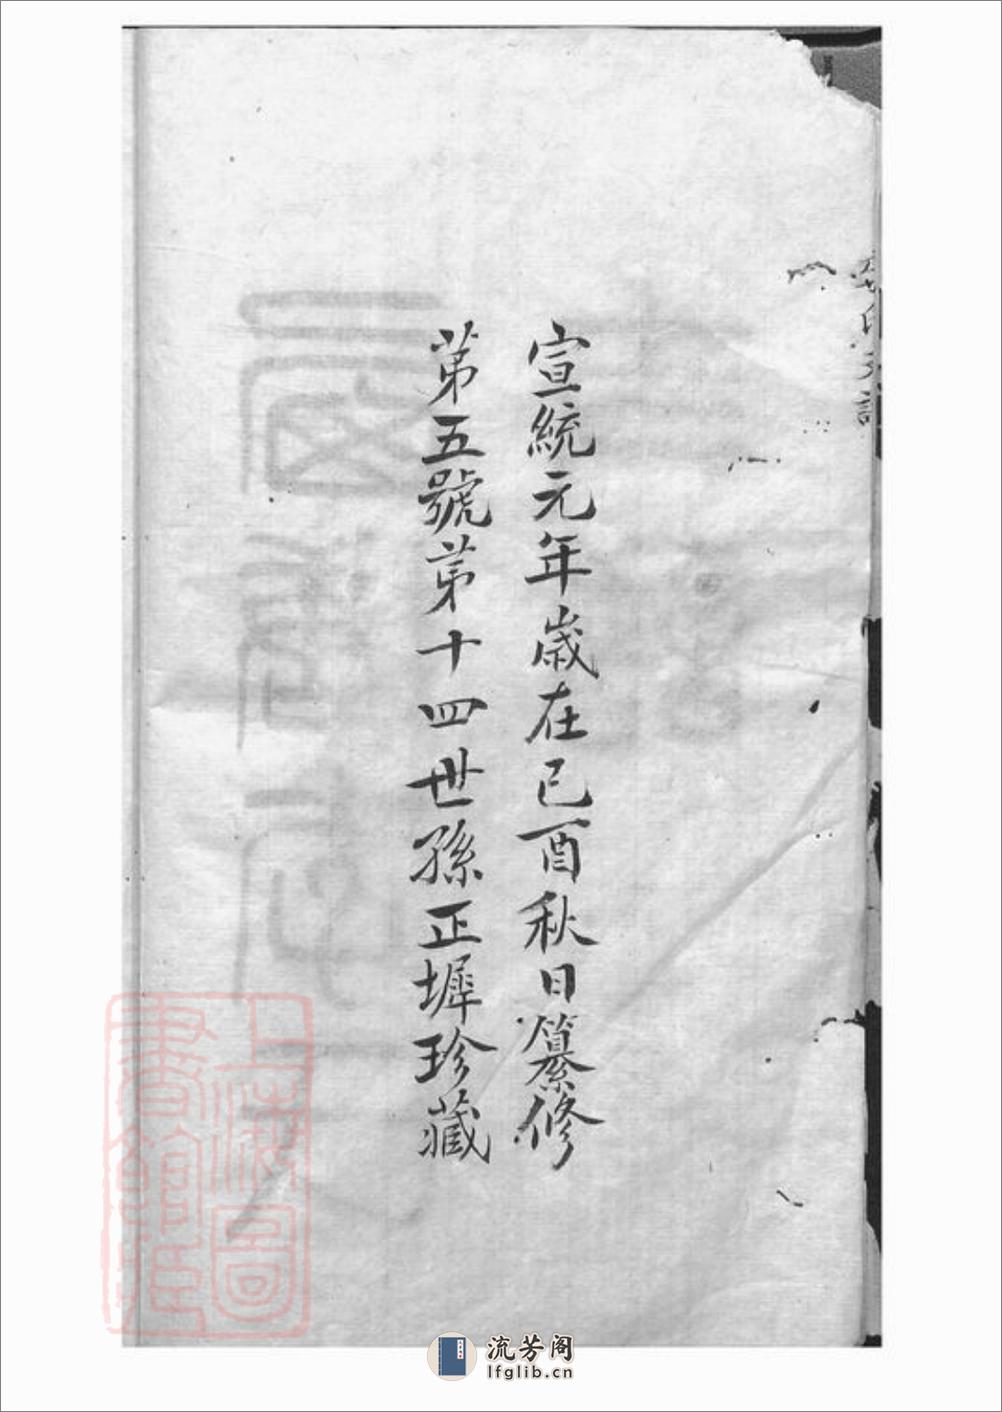 宣統元年歲在己酉秋日纂修
第五號第十四世孫正墀珍藏
上海圖
書館藏
流芳阁
lfglib.cn